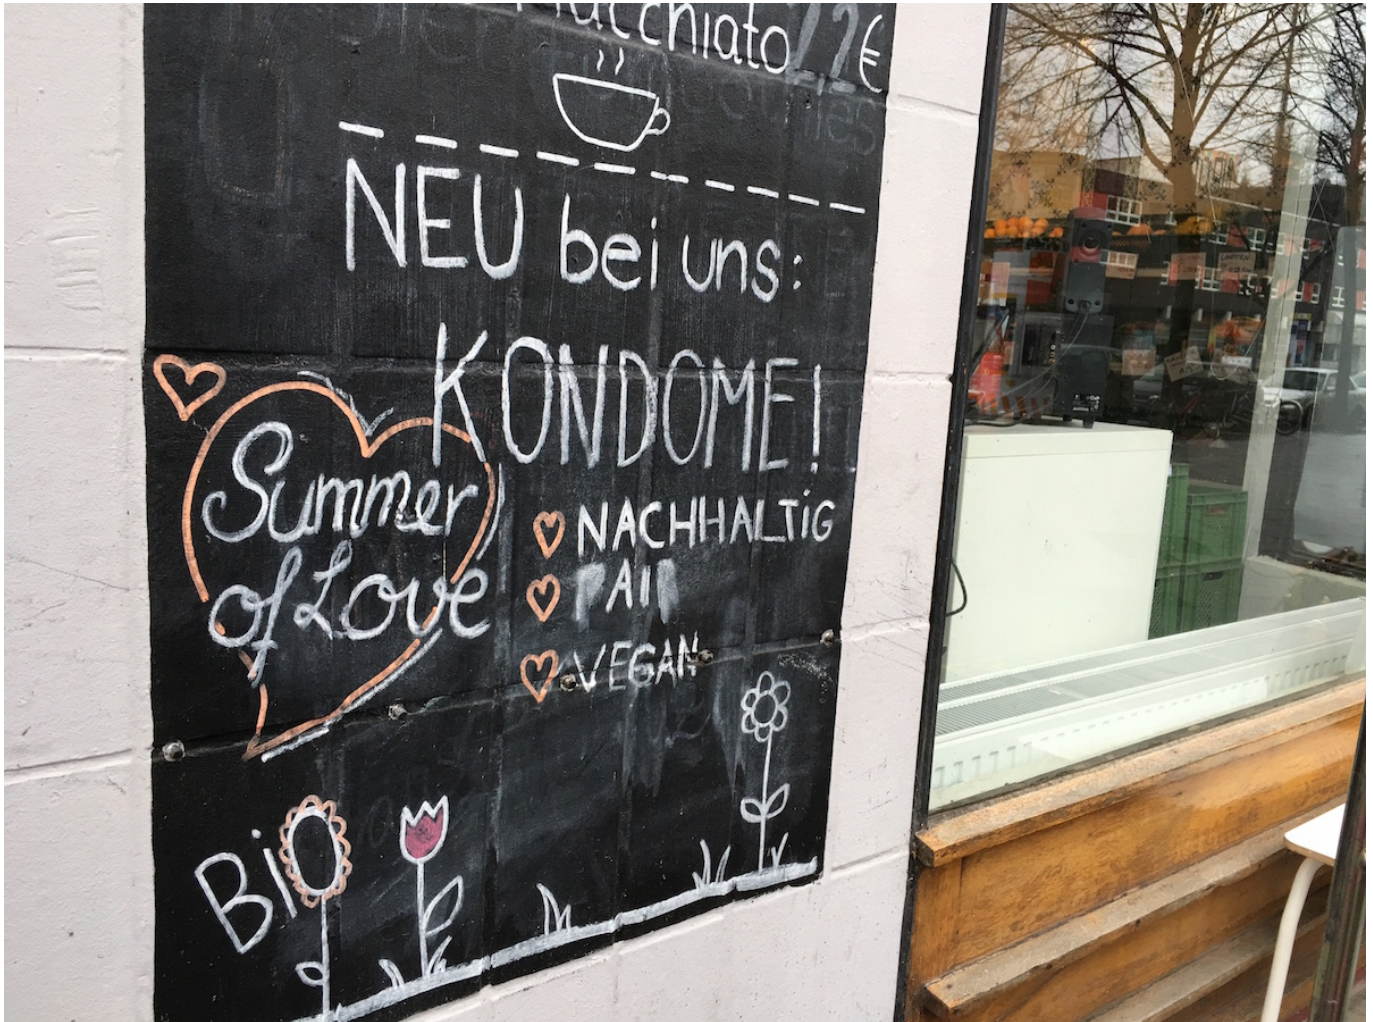 Macchiato
€
NEU bei uns:
KONDOME!
Summer
of Love
NACHHALTiG
FAIR
VEGAN
BiO